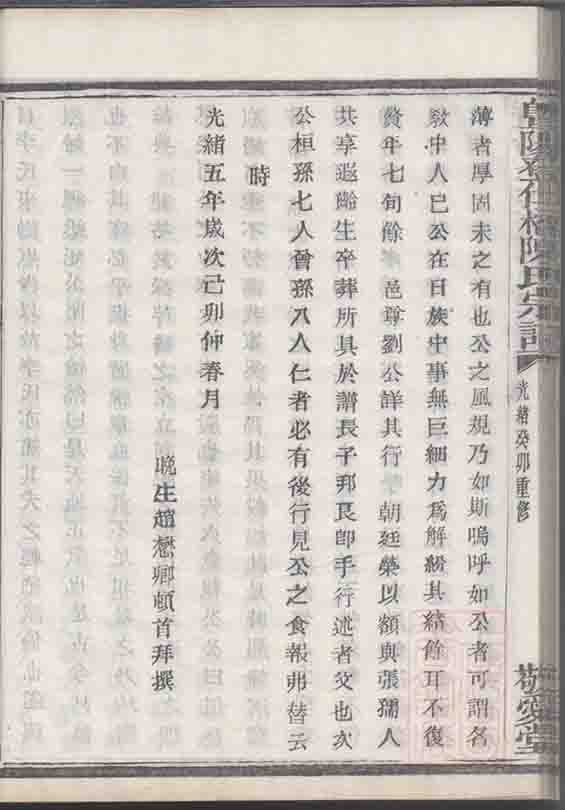 薄者厚固未之有也公之風規乃如斯嗚呼如公者可謂名
教中人已公在日族中事無巨細力為解紛其結餘耳不復
贅年七旬餘 邑尊劉公詳其行 朝廷榮以額與張孺人
共享遐齡生卒葬所具於譜長子邦艮卽手行述者父也次
公桓孫七人曾孫八人仁者必有後行見公之食報弗替云
時
光緒五年歲次己卯仲春月
晚生趙懋卿頓首拜撰
陳氏宗譜
光緒癸卯重修
敬愛堂